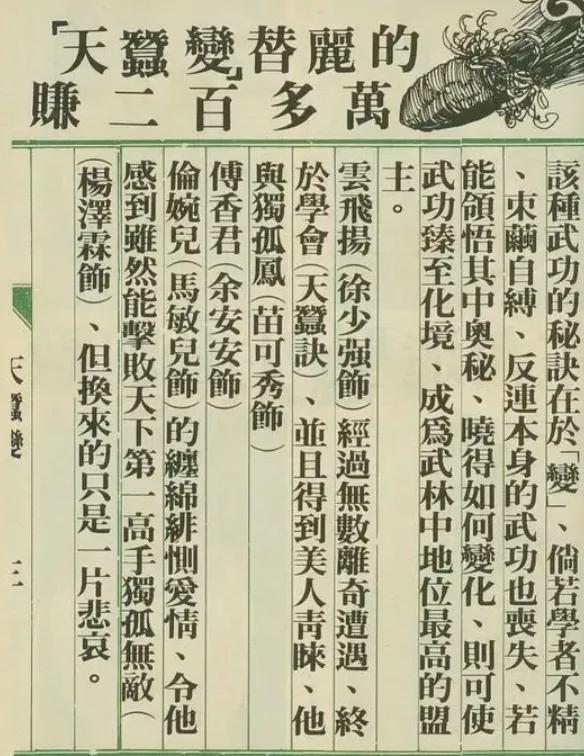 「天蠶變」替麗的
賺二百多萬
該種武功的秘訣在於「變」、倘若學者不精
、束繭自縛、反連本身的武功也喪失、若
能領悟其中奧秘、曉得如何變化、則可使
武功臻至化境、成爲武林中地位最高的盟
主。
雲飛揚（徐少强飾）經過無數離奇遭遇、終
於學會（天蠶訣）、並且得到美人靑睞、他
與獨孤鳳（苗可秀飾）
傅香君（余安安飾）
倫婉兒（馬敏兒飾）的纏綿緋惻愛情、令他
感到雖然能擊敗天下第一高手獨孤無敵（
楊澤霖飾）、但換來的只是一片悲哀。
天蠶變
三